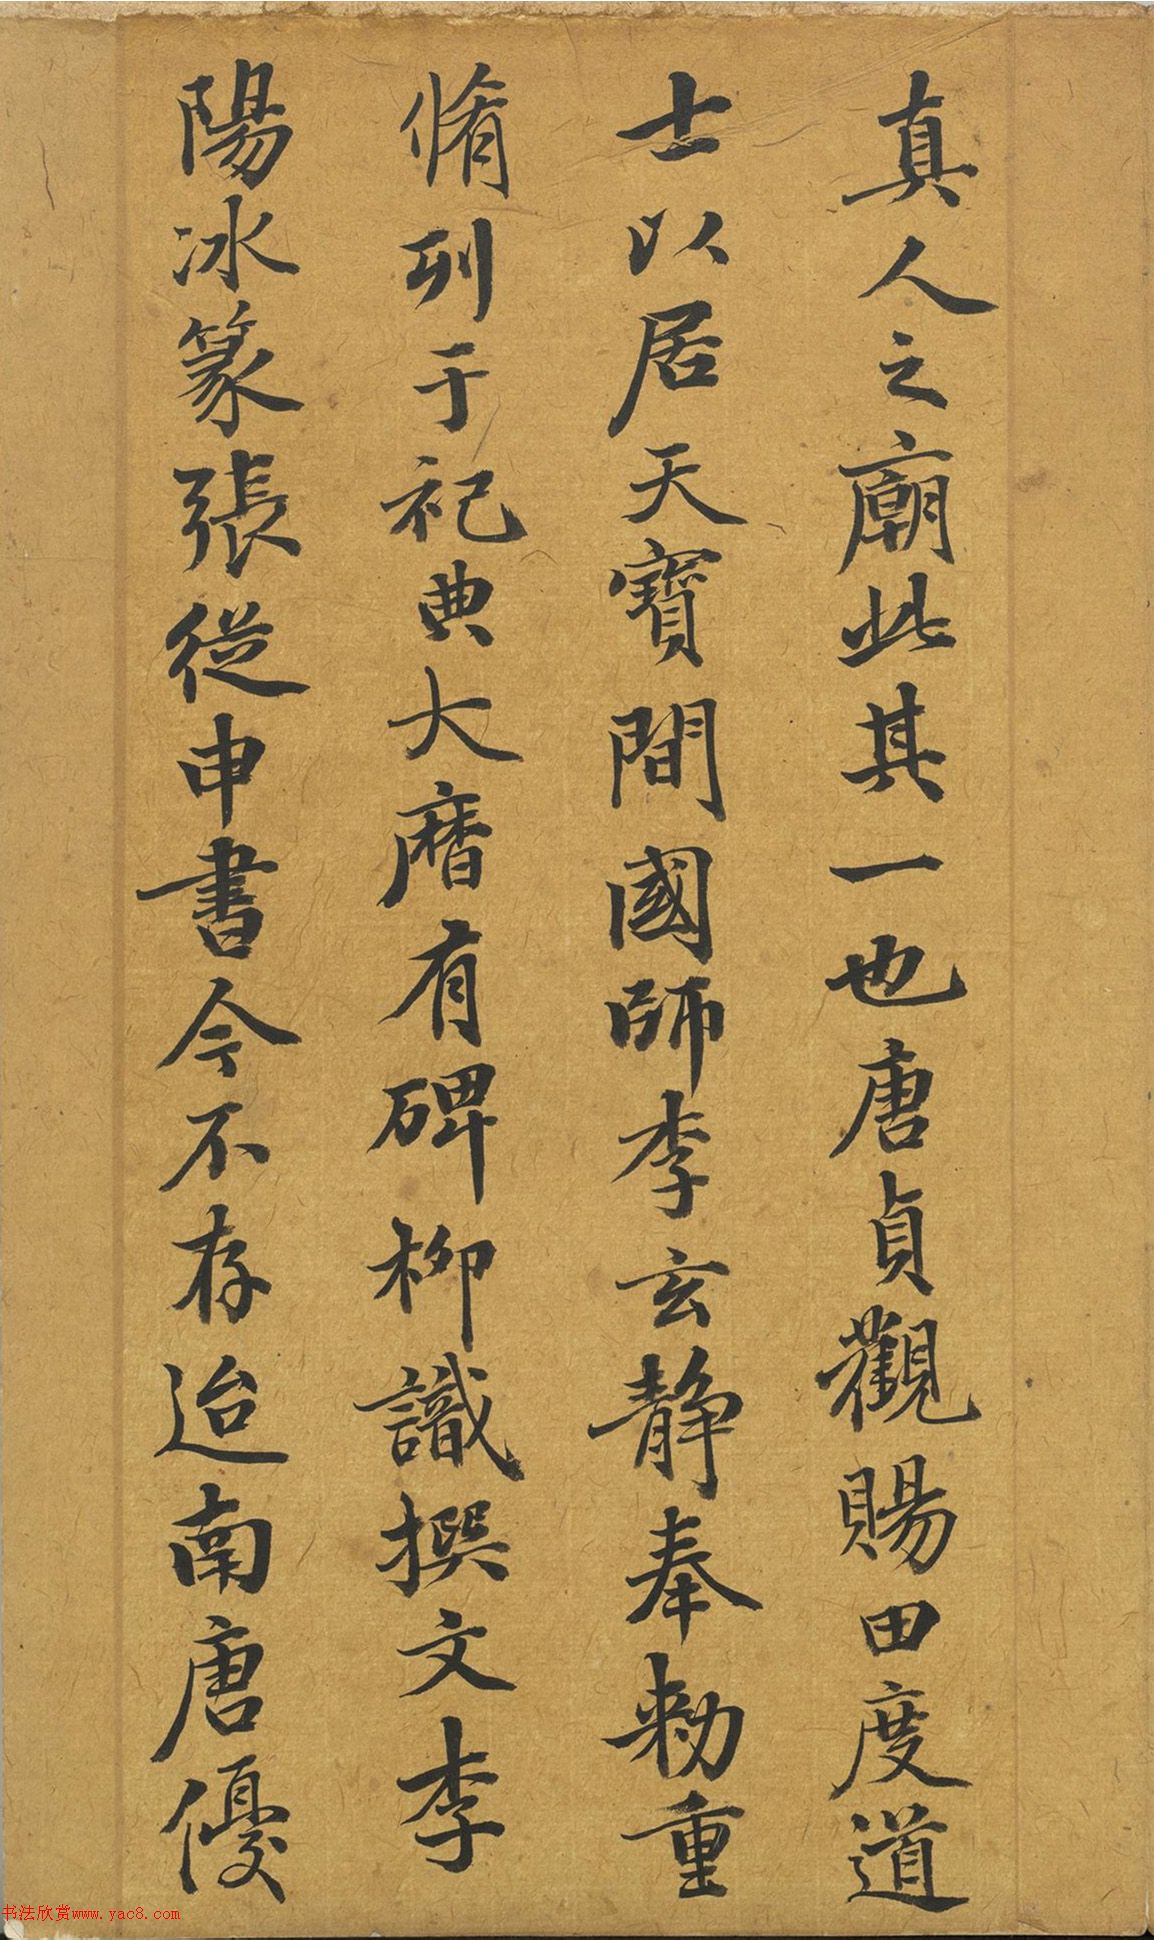 真人之廟此其一也唐貞觀賜田度道
士以居天寶間國師李玄靜奉勑重
脩列于祀典大曆有碑柳識撰文李
陽冰篆張從申書今不存迨南唐優
书法欣赏www.yac8.com